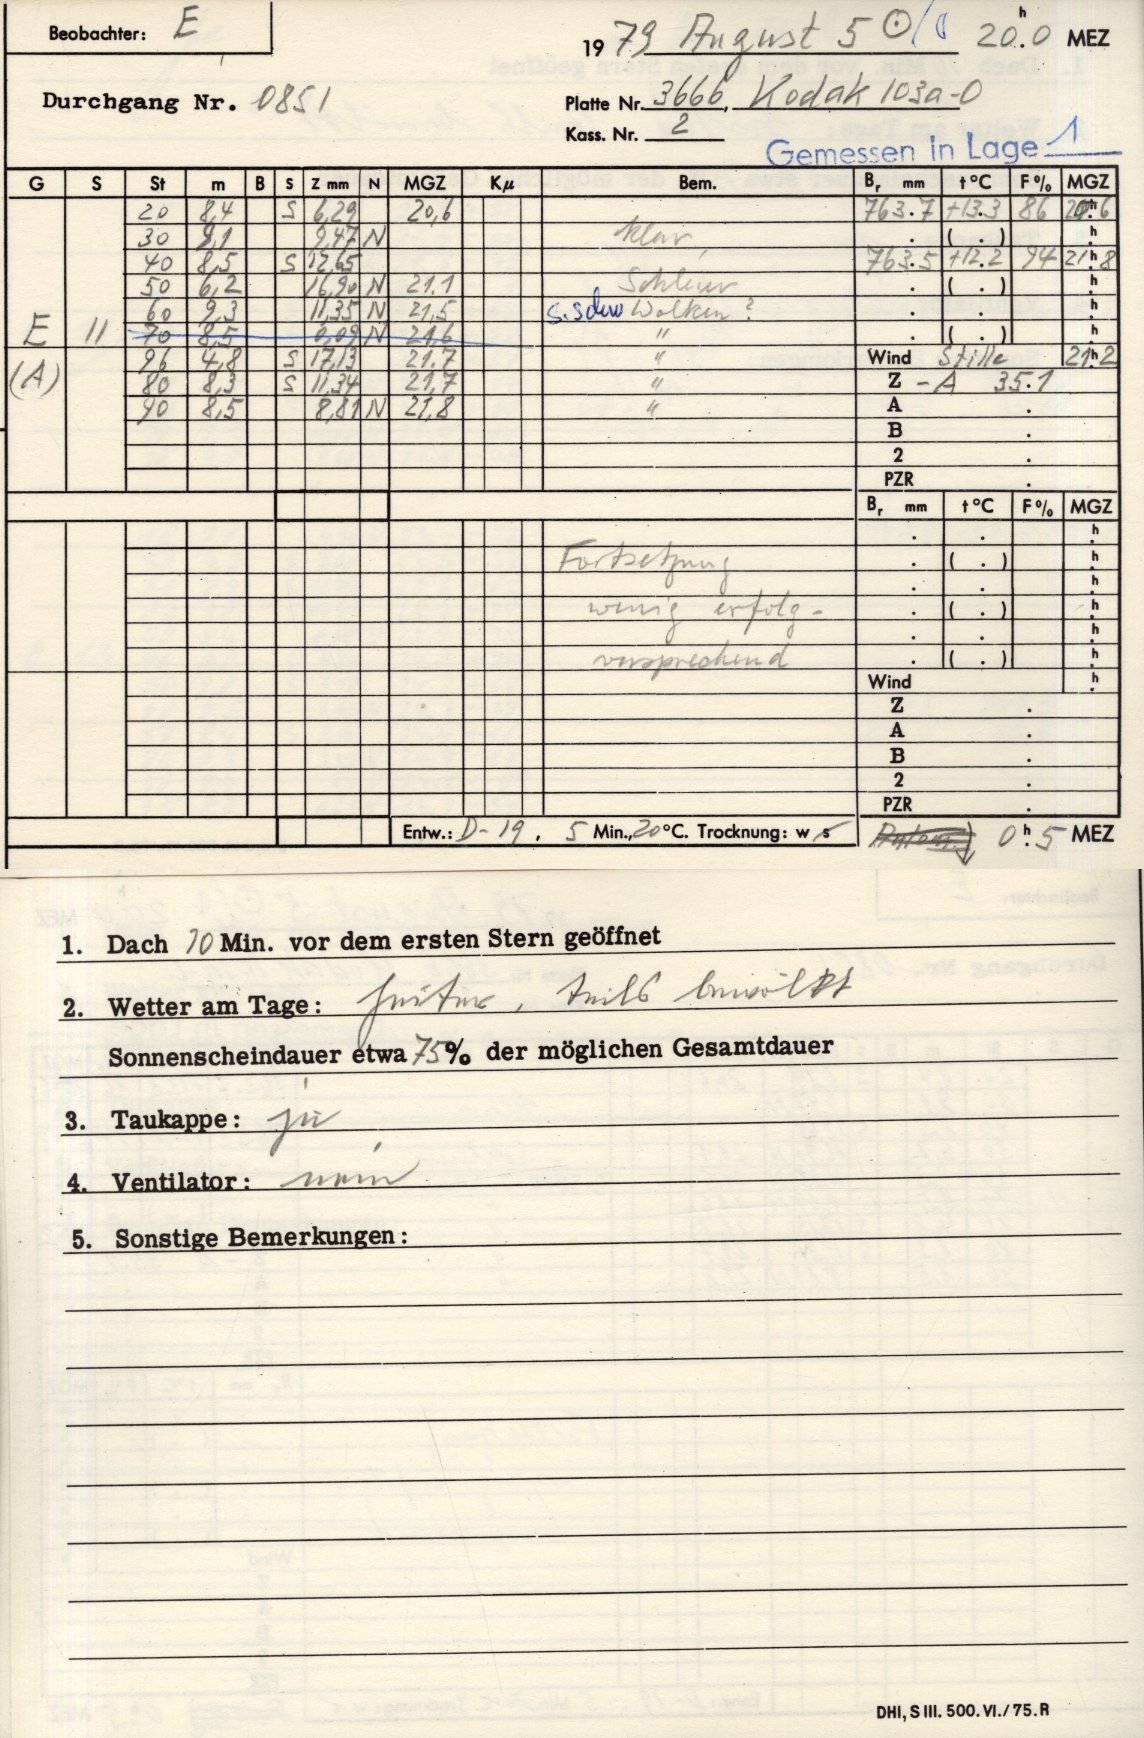 Beobachter: E
1979 August 5 ☉/☾ 20ʰ.0 MEZ
Durchgang Nr. 0851
Platte Nr. 3666, Kodak 103a-O
Kass. Nr. 2
Gemessen in Lage 1
G S St m B S Z mm N MGZ Kμ Bem. Bᵣ mm t°C F% MGZ
20 8,4 S 6,29 20,6 763.7 +13.3 86 20ʰ.6
30 9,1 9,47 N klar, . ( . ) ʰ.
40 8,5 S 12,65 763.5 +12.2 94 21ʰ.8
50 6,2 16,90 N 21.1 Schleier . ( . ) ʰ.
60 9,3 11,35 N 21,5 s. schw Wolken? . . ʰ.
E 11 70 8,5 0,09 N 21,6 " . ( . ) ʰ.
(A) 96 4,8 S 17,13 21.7 " Wind Stille 21ʰ.2
80 8,3 S 11,34 21,7 " Z - A 35.1
90 8,5 8,81 N 21,8 " A .
B .
2 .
PZR .
Bᵣ mm t°C F% MGZ
. . ʰ.
Fortsetzung . ( . ) ʰ.
. . ʰ.
wenig erfolg- . ( . ) ʰ.
. . ʰ.
versprechend . ( . ) ʰ.
Wind ʰ.
Z .
A .
B .
2 .
PZR .
Entw.: D-19. 5 Min., 20°C. Trocknung: w s 0ʰ.5 MEZ
1. Dach 70 Min. vor dem ersten Stern geöffnet
2. Wetter am Tage: heiter, teils bewölkt
Sonnenscheindauer etwa 75% der möglichen Gesamtdauer
3. Taukappe: ja
4. Ventilator: nein
5. Sonstige Bemerkungen:
DHI, S III. 500. VI./75. R